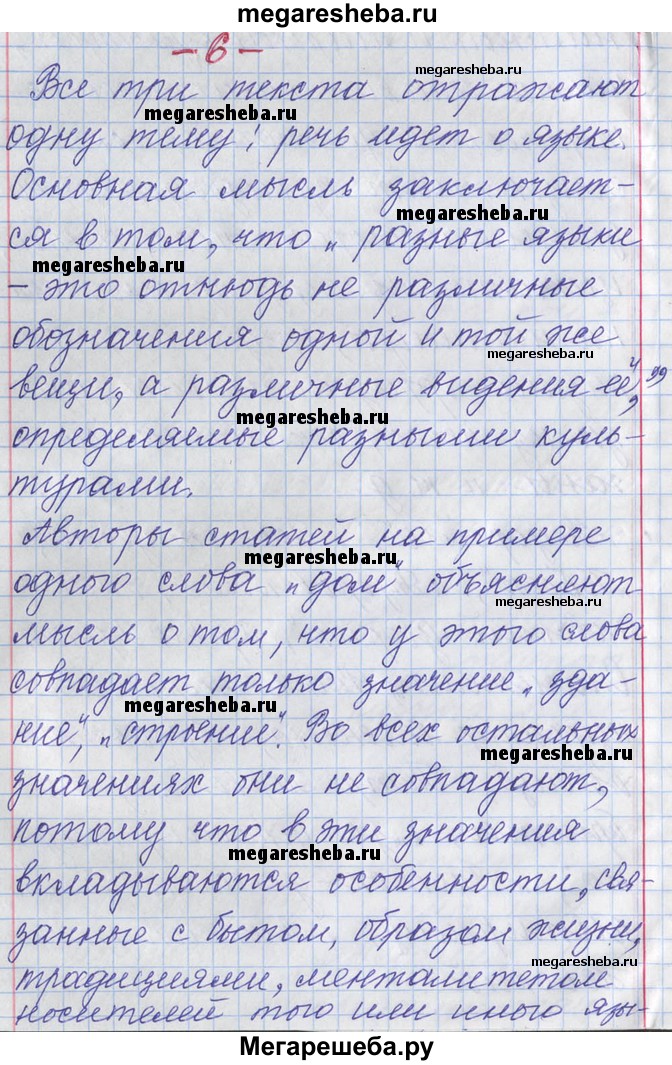 megaresheba.ru
- 6 -
megaresheba.ru
Все три текста отражают
megaresheba.ru
одну тему: речь идет о языке.
Основная мысль заключает-
megaresheba.ru
ся в том, что „разные языки
megaresheba.ru
- это отнюдь не различные
обозначения одной и той же
megaresheba.ru
вещи, а различные видения её",
megaresheba.ru
определяемые разными куль-
турами.
Авторы статей на примере
megaresheba.ru
одного слова „дом" объясняют
megaresheba.ru
мысль о том, что у этого слова
совпадает только значение „зда-
megaresheba.ru
ние", „строение". Во всех остальных
megaresheba.ru
значениях они не совпадают,
потому что в эти значения
megaresheba.ru
вкладываются особенности, свя-
занные с бытом, образом жизни,
megaresheba.ru
традициями, менталитетом
носителей того или иного язы-
megaresheba.ru
Мегарешеба.ру